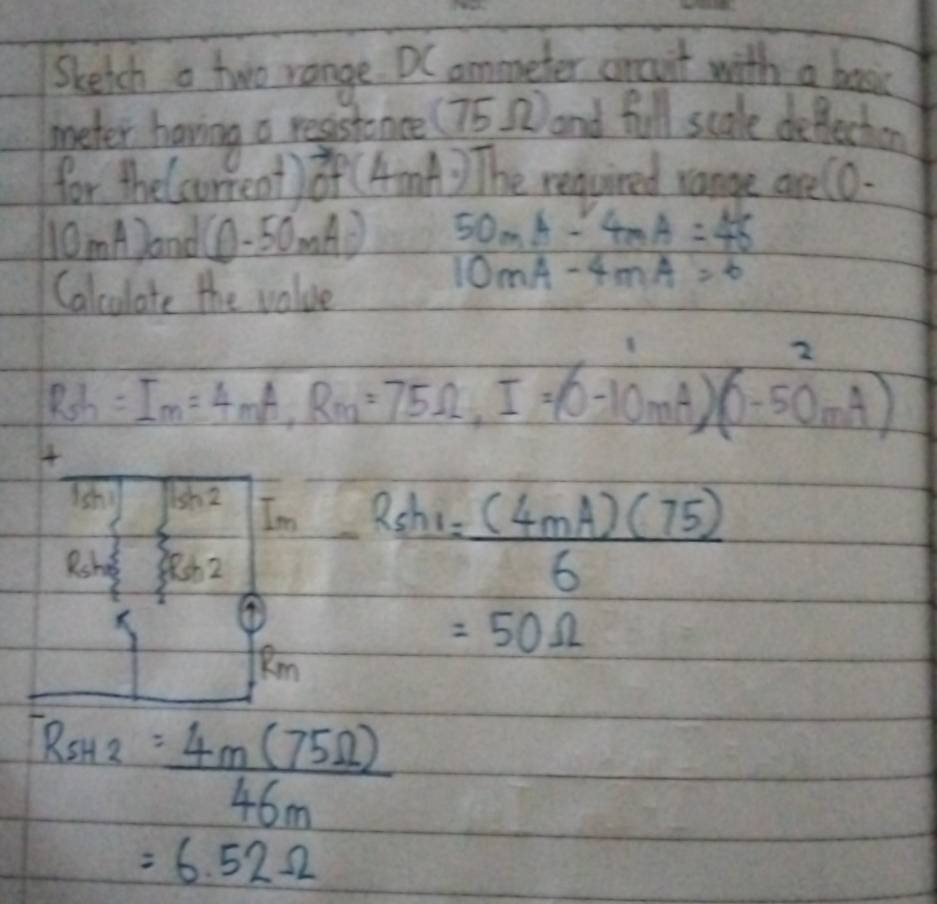 Sketch a two range DC ammeter circuit with a basic
meter having a resistance (75 Ω) and full scale deflection
for the (current) of (4mA.) The required range are (0-
10mA) and (0-50mA.)
50mA - 4mA = 46
10mA - 4mA = 6
Calculate the value
1 2
Rsh = Im = 4mA, Rm = 75Ω, I = (0-10mA)(0-50mA)
+
Ish1 Ish2 Im
Rsh1 Rsh2
Rm
-
Rsh1 = (4mA)(75)
6
= 50Ω
RSH2 = 4m (75Ω)
46m
= 6.52Ω